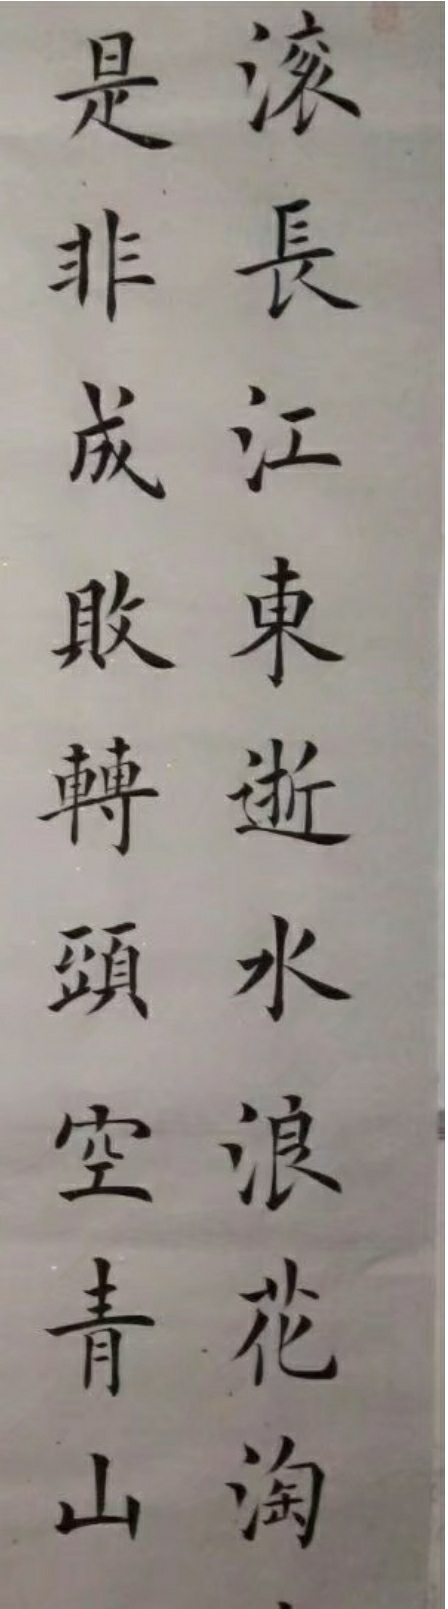 滚長江東逝水浪花淘
是非成敗轉頭空青山